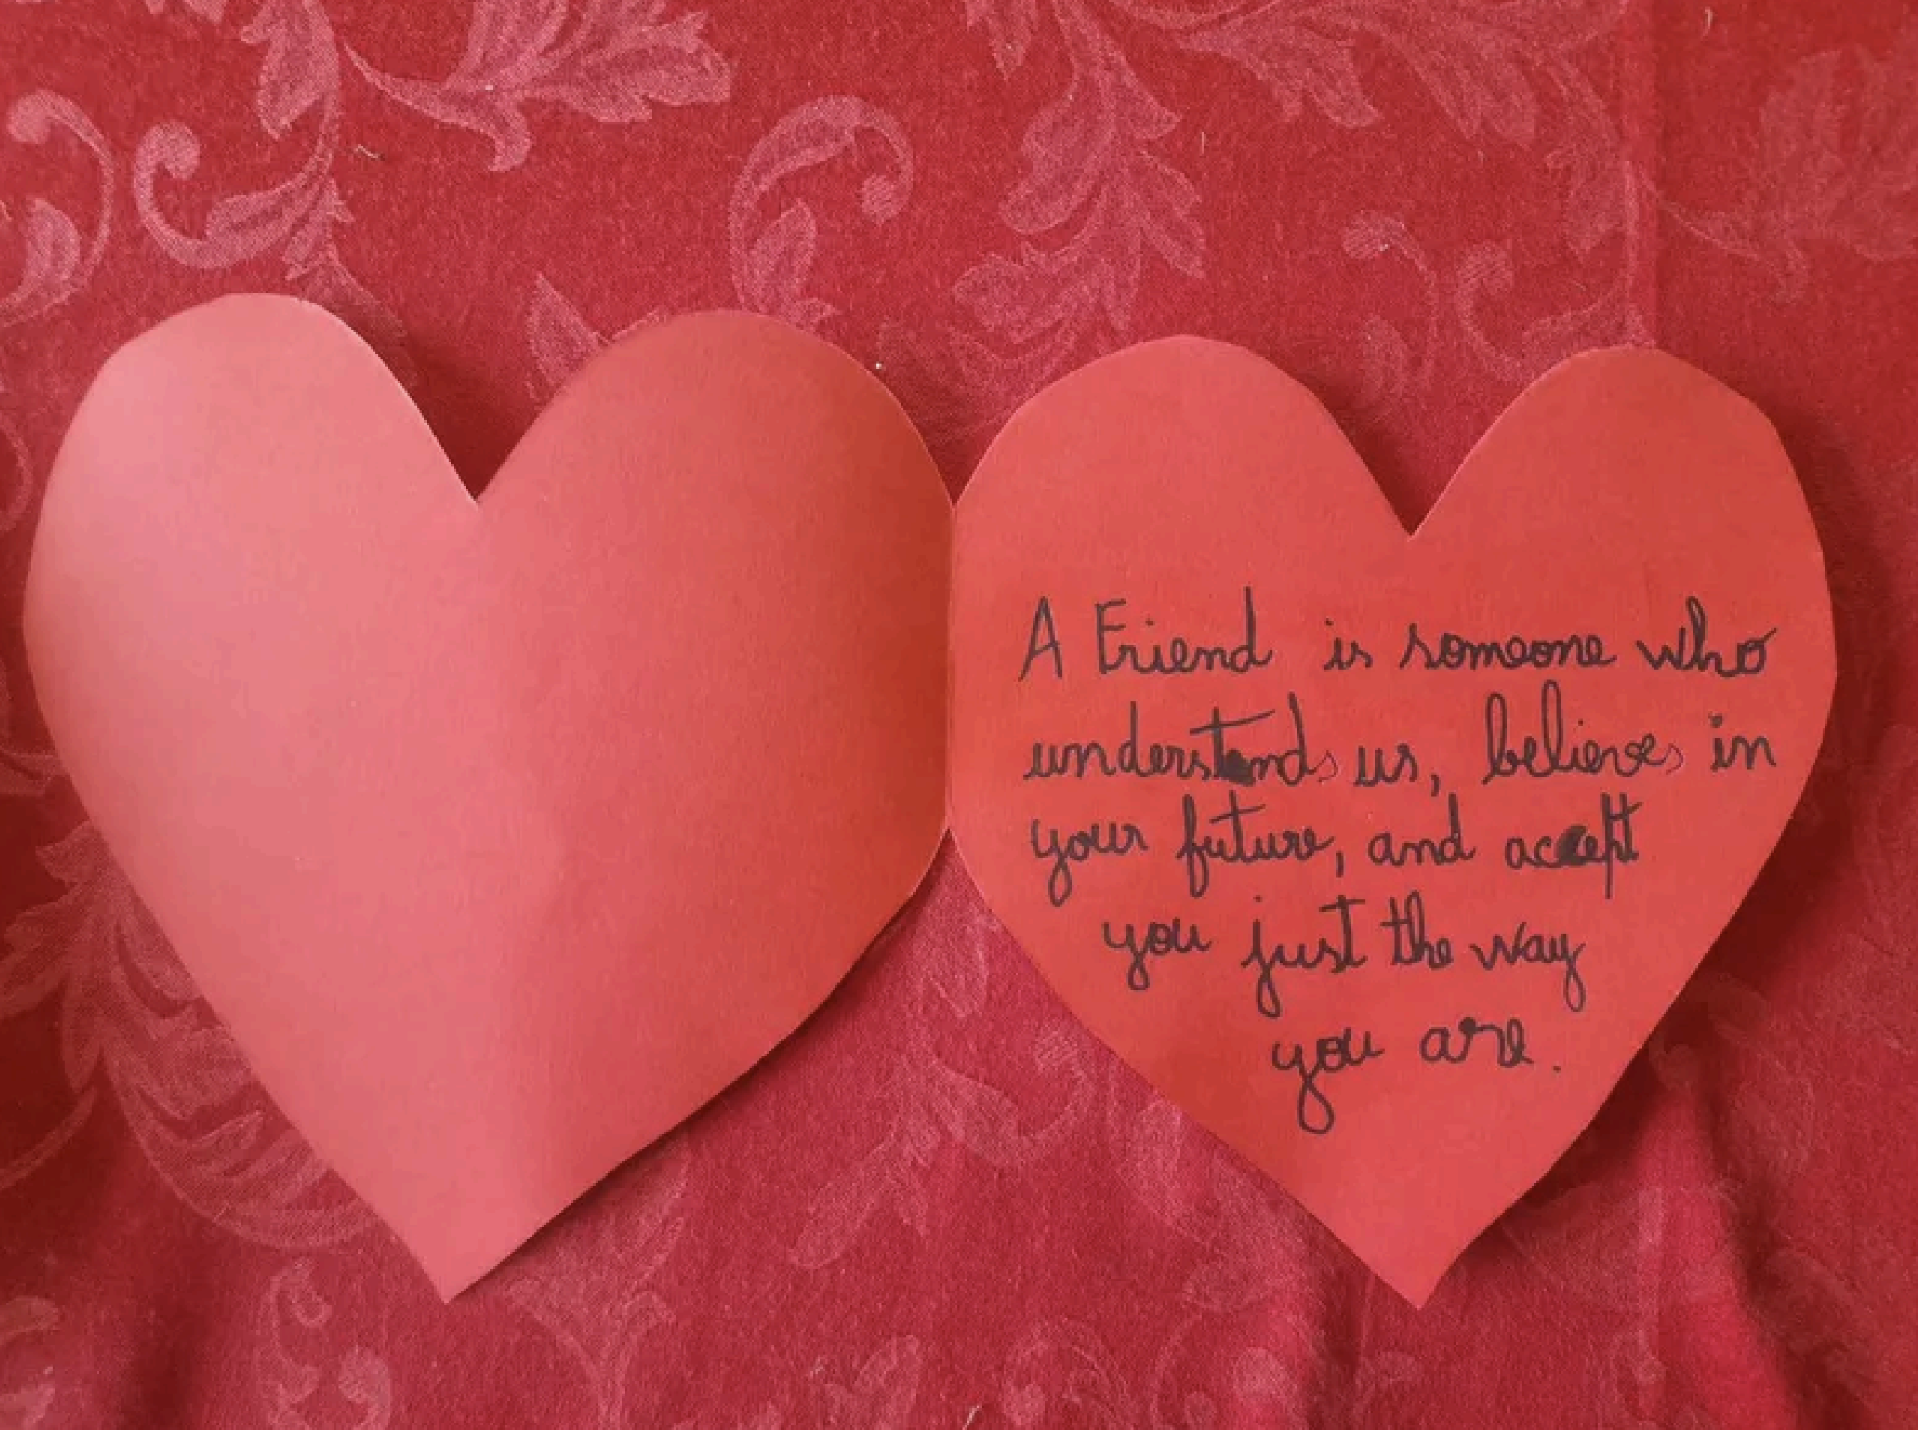 A Friend is someone who
understands us, believes in
your future, and accept
you just the way
you are.